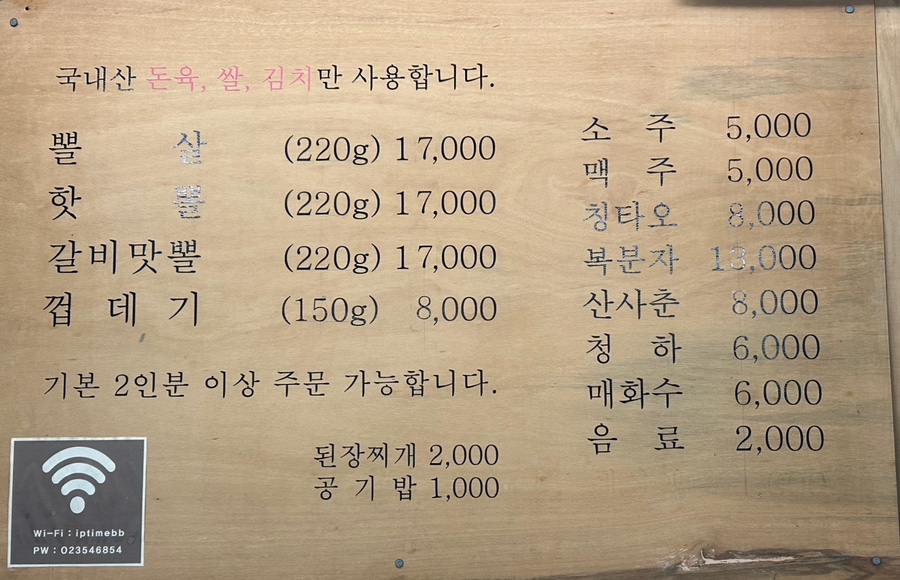 국내산 돈육, 쌀, 김치만 사용합니다.
뽈 살 (220g) 17,000
핫 뽈 (220g) 17,000
갈비맛뽈 (220g) 17,000
껍 데 기 (150g) 8,000
기본 2인분 이상 주문 가능합니다.
된장찌개 2,000
공 기 밥 1,000
소 주 5,000
맥 주 5,000
칭타오 8,000
복분자 13,000
산사춘 8,000
청 하 6,000
매화수 6,000
음 료 2,000
Wi-Fi : iptimebb
PW : 023546854